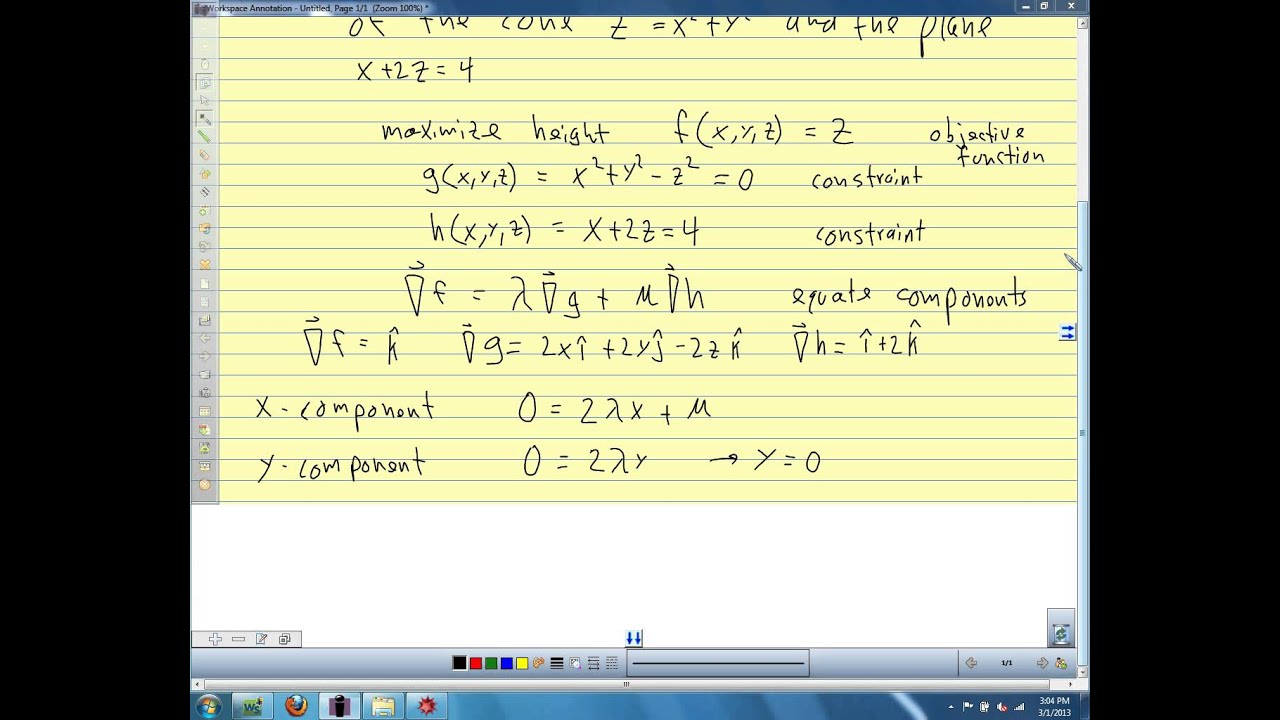 Workspace Annotation - Untitled, Page 1/1 (Zoom 100%) *
of the cone z² = x² + y² and the plane
x + 2z = 4
maximize height f(x,y,z) = z objective function
g(x,y,z) = x² + y² - z² = 0 constraint
h(x,y,z) = x + 2z = 4 constraint
∇⃗f = λ∇⃗g + μ∇⃗h equate components
∇⃗f = k̂ ∇⃗g = 2xî + 2yĵ - 2zk̂ ∇⃗h = î + 2k̂
x-component 0 = 2λx + μ
y-component 0 = 2λy → y = 0
1/1
3:04 PM
3/1/2013